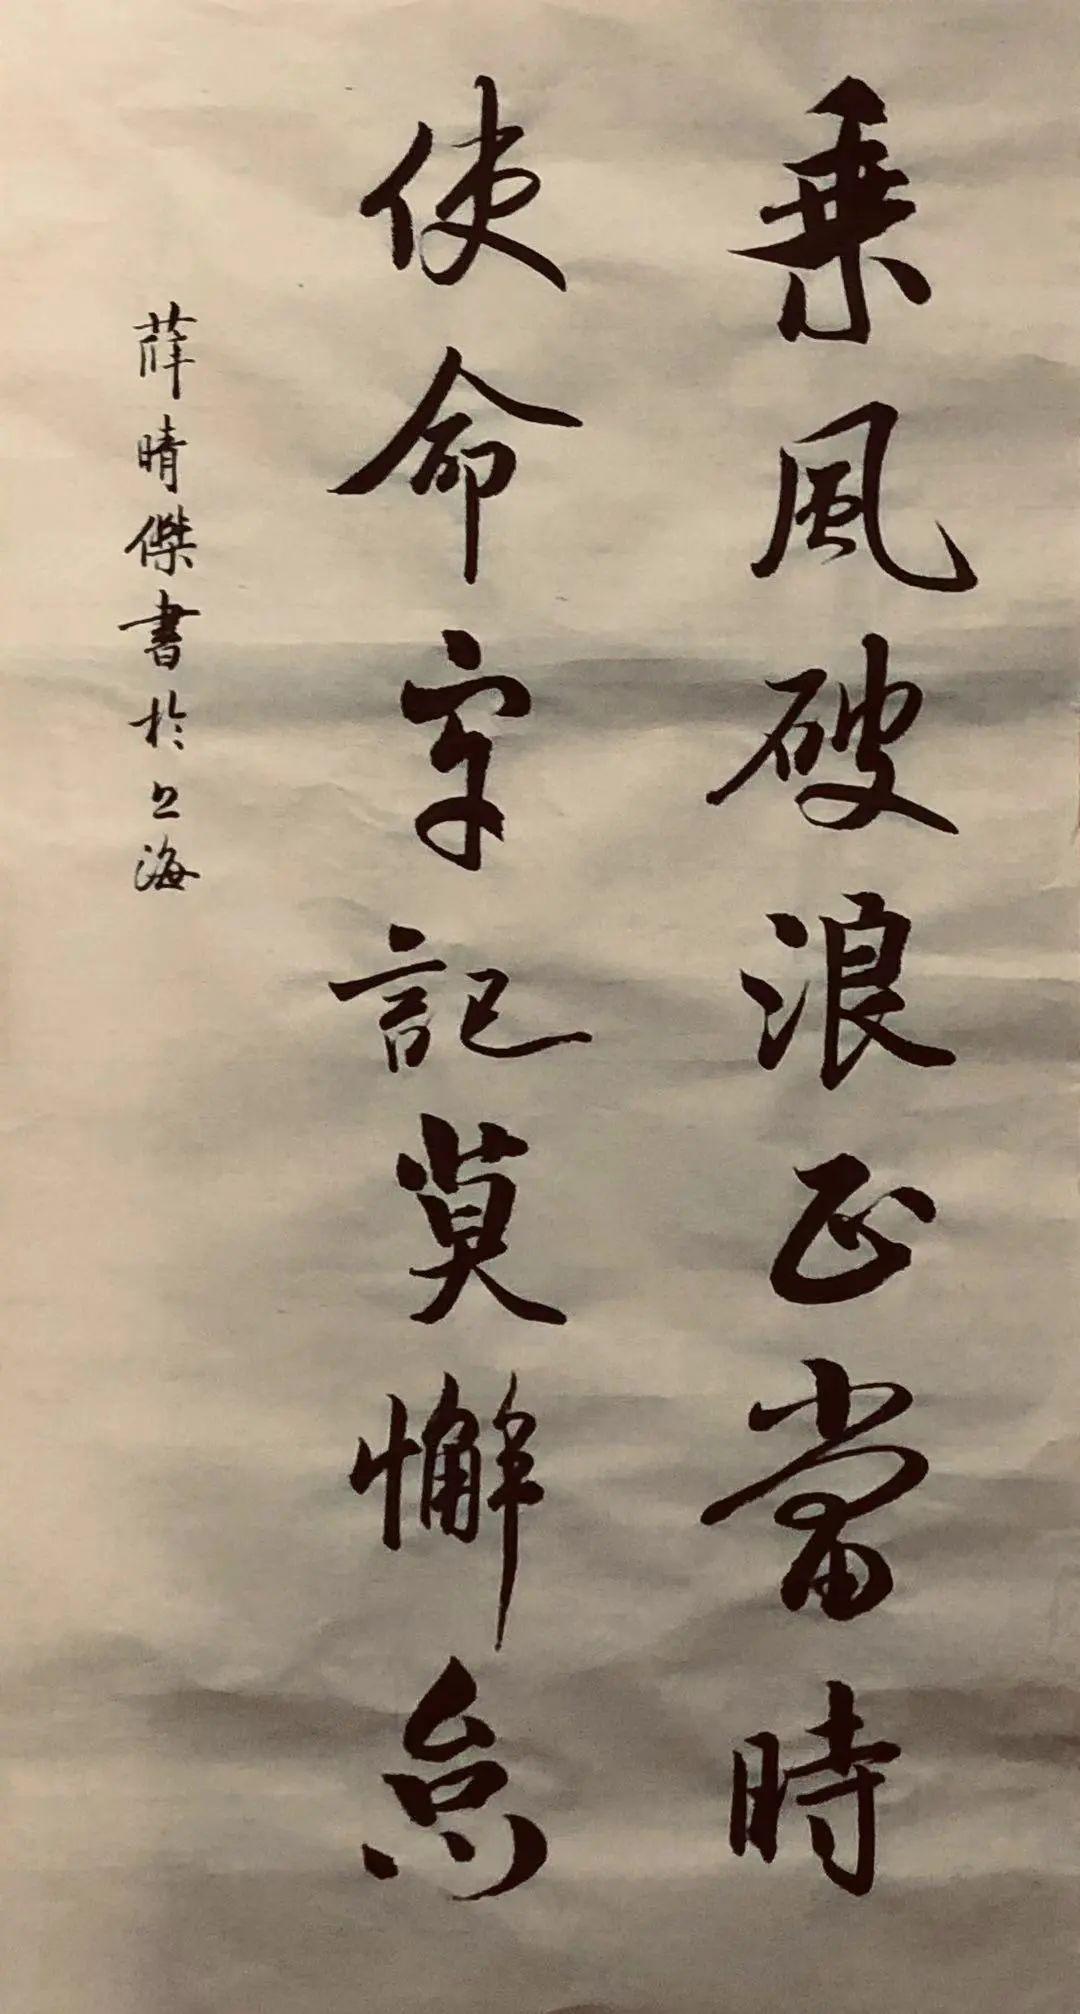 乘風破浪正當時
使命牢記莫懈怠
薛晴傑書於上海